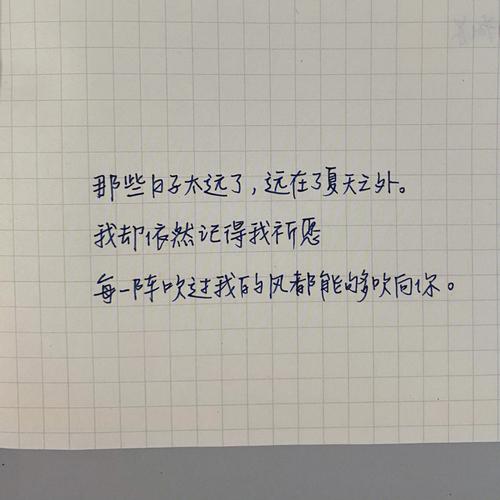 那些日子太远了，远在了夏天之外。
我却依然记得我祈愿
每一阵吹过我的风都能够吹向你。